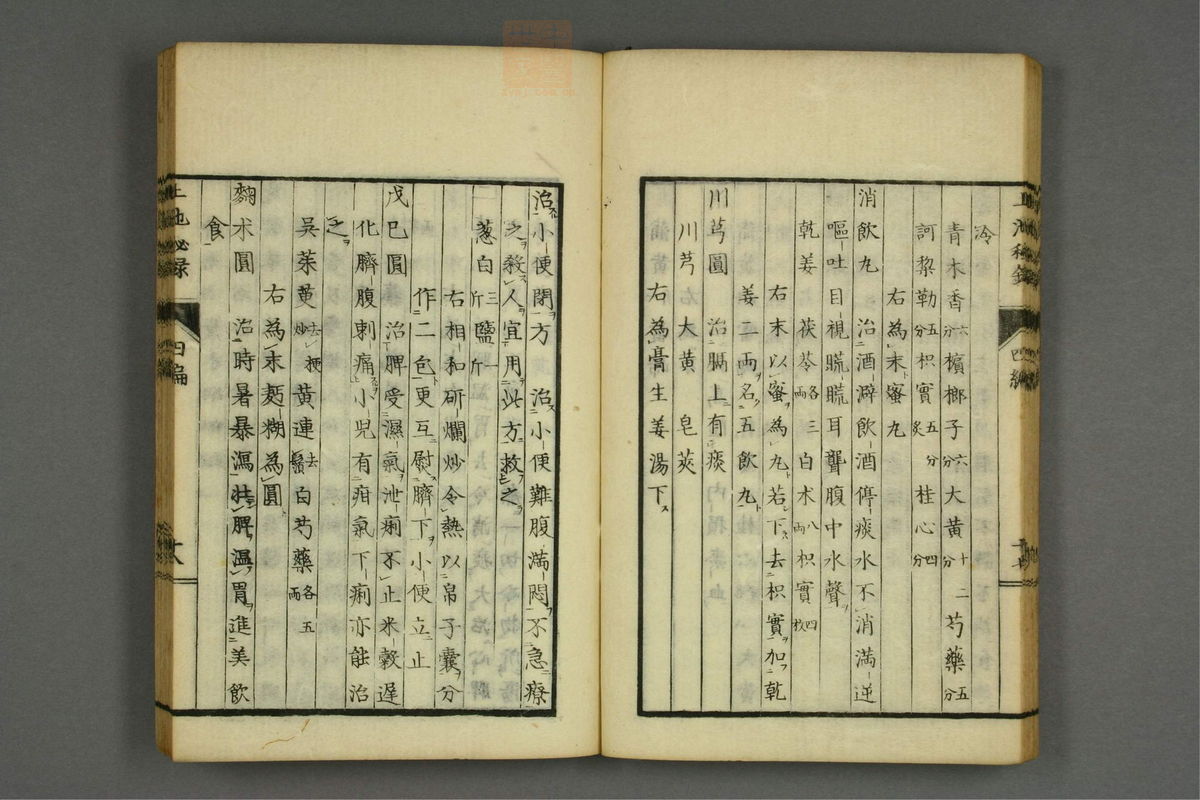 冷
青木香六分檳榔子六分大黃十二分芍藥五分
訶黎勒五分枳實五分炙桂心四分
右為末蜜丸
消飲丸治酒澼飲酒停痰水不消滿逆
嘔吐目視䀮䀮耳聾腹中水聲
乾姜茯苓各三兩白朮八兩枳實四枚
右末以蜜為丸若下去枳實加乾
姜二兩名五飲丸
川芎圓治膈上有痰
川芎大黃皂莢
右為膏生姜湯下
治小便閉方治小便難腹滿悶不急療
之殺人宜用此方救之
蔥白三斤鹽一斤
右相和研爛炒令熱以帛子囊分
作二包更互慰臍下小便立止
戊巳圓治脾受濕氣泄痢不止米穀遲
化臍腹刺痛小兒有疳氣下痢亦能治
之
吳茱萸去梗炒黃連去鬚白芍藥各五兩
右為末麪糊為圓
麴朮圓治時暑暴瀉壯脾溫胃進美飲
食
四編